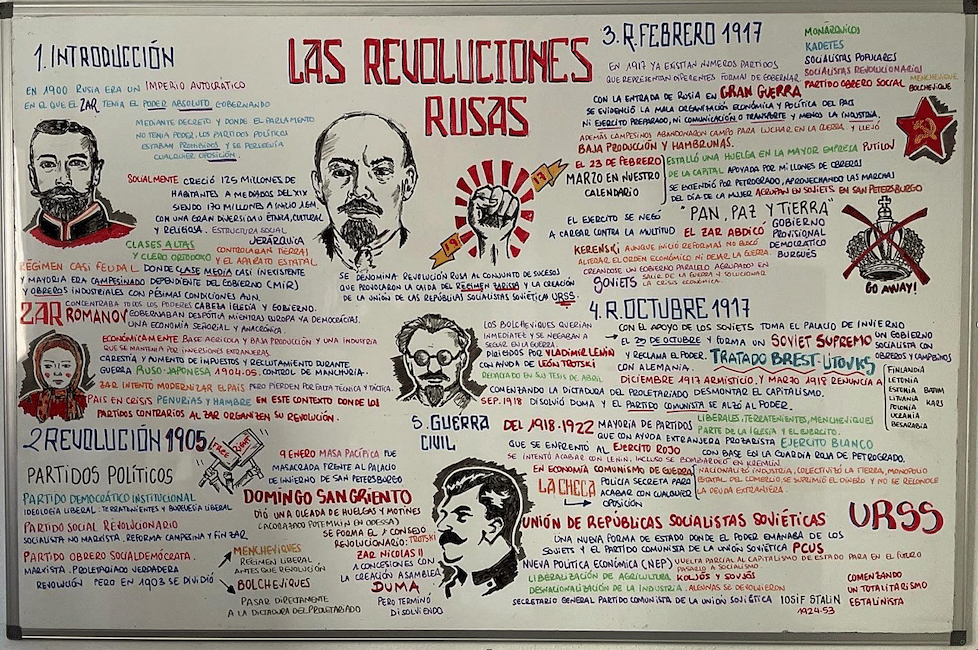 LAS REVOLUCIONES
RUSAS
1. INTRODUCCIÓN
EN 1900 RUSIA ERA UN IMPERIO AUTOCRÁTICO
EN EL QUE EL ZAR TENIA EL PODER ABSOLUTO GOBERNANDO
MEDIANTE DECRETO Y DONDE EL PARLAMENTO
NO TENIA PODER, LOS PARTIDOS POLÍTICOS
ESTABAN PROHIBIDOS Y SE PERSEGUIA
CUALQUIER OPOSICIÓN.
SOCIALMENTE CRECIÓ 125 MILLONES DE
HABITANTES A MEDIADOS DEL XIX
SIENDO 170 MILLONES A INICIO 1GM.
CON UNA GRAN DIVERSIDAD ÉTNICA, CULTURAL
Y RELIGIOSA. ESTRUCTURA SOCIAL
JERÁRQUICA
CLASES ALTAS
Y CLERO ORTODOXO
CONTROLABAN TIERRAS
Y EL APARATO ESTATAL
RÉGIMEN CASI FEUDAL. DONDE CLASE MEDIA CASI INEXISTENTE
Y MAYORIA ERA CAMPESINADO DEPENDIENTE DEL GOBIERNO (MIR)
Y OBREROS INDUSTRIALES CON PÉSIMAS CONDICIONES AUN.
ZAR ROMANOV
CONCENTRABA TODOS LOS PODERES CABEZA IGLESIA Y GOBIERNO.
GOBERNABAN DESPÓTIA MIENTRAS EUROPA YA DEMOCRACIAS.
UNA ECONOMÍA SEÑORIAL Y ANACRÓNICA.
ECONÓMICAMENTE BASE AGRICOLA Y BAJA PRODUCCIÓN Y UNA INDUSTRIA
QUE SE MANTENIA POR INVERSIONES EXTRANJERAS.
CARESTÍA Y AUMENTO DE IMPUESTOS Y RECLUTAMIENTO DURANTE
GUERRA RUSO-JAPONESA 1904-05. CONTROL DE MANCHURIA.
ZAR INTENTÓ MODERNIZAR EL PAÍS PERO PIERDEN POR FALTA TÉCNICA Y TÁCTICA.
PAIS EN CRISIS PENURIAS Y HAMBRE EN ESTE CONTEXTO DONDE LOS
PARTIDOS CONTRARIOS AL ZAR ORGANIZEN SU REVOLUCIÓN.
19
17
SE DENOMINA REVOLUCIÓN RUSA AL CONJUNTO DE SUCESOS
QUE PROVOCARON LA CAIDA DEL RÉGIMEN ZARISTA Y LA CREACIÓN
DE LA UNION DE LAS REPÚBLIAS SOCIALISTAS SOVIÉTICA URSS.
2 REVOLUCIÓN 1905
FREE
RIGHT
PARTIDOS POLÍTICOS
PARTIDO DEMOCRÁTICO INSTITUCIONAL
IDEOLOGÍA LIBERAL. TERRATENIENTES Y BURGUESIA LIBERAL
PARTIDO SOCIAL REVOLUCIONARIO
SOCIALISTA NO MARXISTA. REFORMA CAMPESINA Y FIN ZAR
PARTIDO OBRERO SOCIALDEMÓCRATA.
MARXISTA. PROLETARIADO VERDADERA
REVOLUCIÓN PERO EN 1903 SE DIVIDIÓ
MENCHEVIQUES
REGIMEN LIBERAL
ANTES QUE REVOLUCIÓN
BOLCHEVIQUES
PASAR DIRECTAMENTE
A LA DICTADURA DEL PROLETARIADO
9 ENERO MASA PACÍFICA FUE
MASACRADA FRENTE AL PALACIO
DE INVIERNO DE SAN PETERSBURGO
DOMINGO SANGRIENTO
DIÓ UNA OLEADA DE HUELGAS Y MOTINES
(ACORAZADO POTEMKIN EN ODESSA)
SE FORMA EL 1º CONSEJO
REVOLUCIONARIO. TROTSKI
ZAR NICOLAS II
A CONCESIONES CON
LA CREACIÓN ASAMBLEA
DUMA
PERO TERMINÓ
DISOLVIENDO
3. R. FEBRERO 1917
EN 1917 YA EXISTIAN NUMEROS PARTIDOS
QUE REPRESENTAN DIFERENTES FORMAS DE GOBERNAR
MONÁRQUICOS
KADETES
SOCIALISTAS POPULARES
SOCIALISTAS REVOLUCIONARIOS
PARTIDO OBRERO SOCIAL
MENCHEVIQUE
BOLCHEVIQUE
CON LA ENTRADA DE RUSIA EN GRAN GUERRA
SE EVIDENCIÓ LA MALA ORGANIZACIÓN ECONÓMICA Y POLÍTICA DEL PAIS
NI EJERCITO PREPARADO, NI COMUNICACIÓN O TRANSPORTE Y MENOS LA INDUSTRIA.
ADEMÁS CAMPESINOS ABANDONARON CAMPO PARA LUCHAR EN LA GUERRA Y LLEVÓ
BAJA PRODUCCIÓN Y HAMBRUNAS.
EL 23 DE FEBRERO
MARZO EN NUESTRO
CALENDARIO
ESTALLÓ UNA HUELGA EN LA MAYOR EMPRESA PUTILON
DE LA CAPITAL APOYADA POR MILLONES DE OBREROS
SE EXTENDIÓ POR PETROGRADO, APROVECHANDO LAS MARCHAS
DEL DÍA DE LA MUJER AGRUPAN EN SOVIETS EN SAN PETERSBURGO
EL EJERCITO SE NEGÓ
A CARGAR CONTRA LA MULTITUD
"PAN, PAZ Y TIERRA"
EL ZAR ABDICÓ
GOBIERNO
PROVISIONAL
DEMOCRATICO
BURGUÉS
KERENSKI AUNQUE INICIÓ REFORMAS NO BUSCÓ
ALTERAR EL ORDEN ECONÓMICO NI DEJAR LA GUERRA.
CREANDOSE UN GOBIERNO PARALELO AGRUPADO EN
SOVIETS
SALIR DE LA GUERRA Y SOLUCIONAR
LA CRISIS ECONÓMICA.
GO AWAY!
4. R. OCTUBRE 1917
LOS BOLCHEVIQUES QUERIAN
INMEDIATEZ Y SE NEGABAN A
SEGUIR EN LA GUERRA
DIRIGIDOS POR VLADIMIR LENIN
CON AYUDA DE LEÓN TROTSKI
REDACTADO EN SU TESIS DE ABRIL
CON EL APOYO DE LOS SOVIETS TOMA EL PALACIO DE INVIERNO
EL 25 DE OCTUBRE Y FORMA UN SOVIET SUPREMO
UN GOBIERNO
SOCIALISTA CON
OBREROS Y CAMPESINOS
Y RECLAMA EL PODER.
TRATADO BREST-LITOVKS
CON ALEMANIA.
DICIEMBRE 1917 ARMISTICIO, Y MARZO 1918 RENUNCIA A
FINLANDIA
LETONIA
ESTONIA
LITUANIA
POLONIA
UCRANIA
BESARABIA
BATUM
KARS
COMENZANDO LA DICTADURA DEL PROLETARIADO DESMONTAR EL CAPITALISMO.
SEP. 1918 DISOLVIÓ DUMA Y EL PARTIDO COMUNISTA SE ALZÓ AL PODER.
5. GUERRA
CIVIL
DEL 1918-1922
MAYORIA DE PARTIDOS
QUE CON AYUDA EXTRANJERA PROZARISTA
LIBERALES, TERRATENIENTES, MENCHEVIQUES
PARTE DE LA IGLESIA Y EL EJERCITO.
EJERCITO BLANCO
QUE SE ENFRENTÓ AL EJERCITO ROJO
CON BASE EN LA GUARDIA ROJA DE PETROGRADO.
SE INTENTÓ ACABAR CON LENIN. INCLUSO SE BOMBARDEO EN KREMLIN.
EN ECONOMÍA COMUNISMO DE GUERRA
NACIONALIZÓ INDUSTRIA, COLECTIVIZÓ LA TIERRA, MONOPOLIO
ESTATAL DEL COMERCIO, SE SUPRIMIÓ EL DINERO Y NO SE RECONOCE
LA DEUDA EXTRANJERA.
LA CHECA
POLICÍA SECRETA PARA
ACABAR CON CUALQUIER
OPOSICIÓN
UNIÓN DE REPÚBLICAS SOCIALISTAS SOVIÉTICAS
URSS
UNA NUEVA FORMA DE ESTADO DONDE EL PODER EMANABA DE LOS
SOVIETS Y EL PARTIDO COMUNISTA DE LA UNIÓN SOVIÉTICA PCUS
NUEVA POLÍTICA ECONÓMICA (NEP)
VUELTA PARCIAL AL CAPITALISMO DE ESTADO PARA EN EL FUTURO
PASARLO A SOCIALISMO
LIBERALIZACIÓN DE AGRICULTURA. KOLJÓS Y SOVJÓS
DESNACIONALIZACIÓN DE LA INDUSTRIA. ALGUNAS SE DEVOLVIERON
SECRETARIO GENERAL PARTIDO COMUNISTA DE LA UNION SOVIÉTICA IOSIF STALIN
1924-53
COMENZANDO
UN TOTALITARISMO
ESTALINISTA